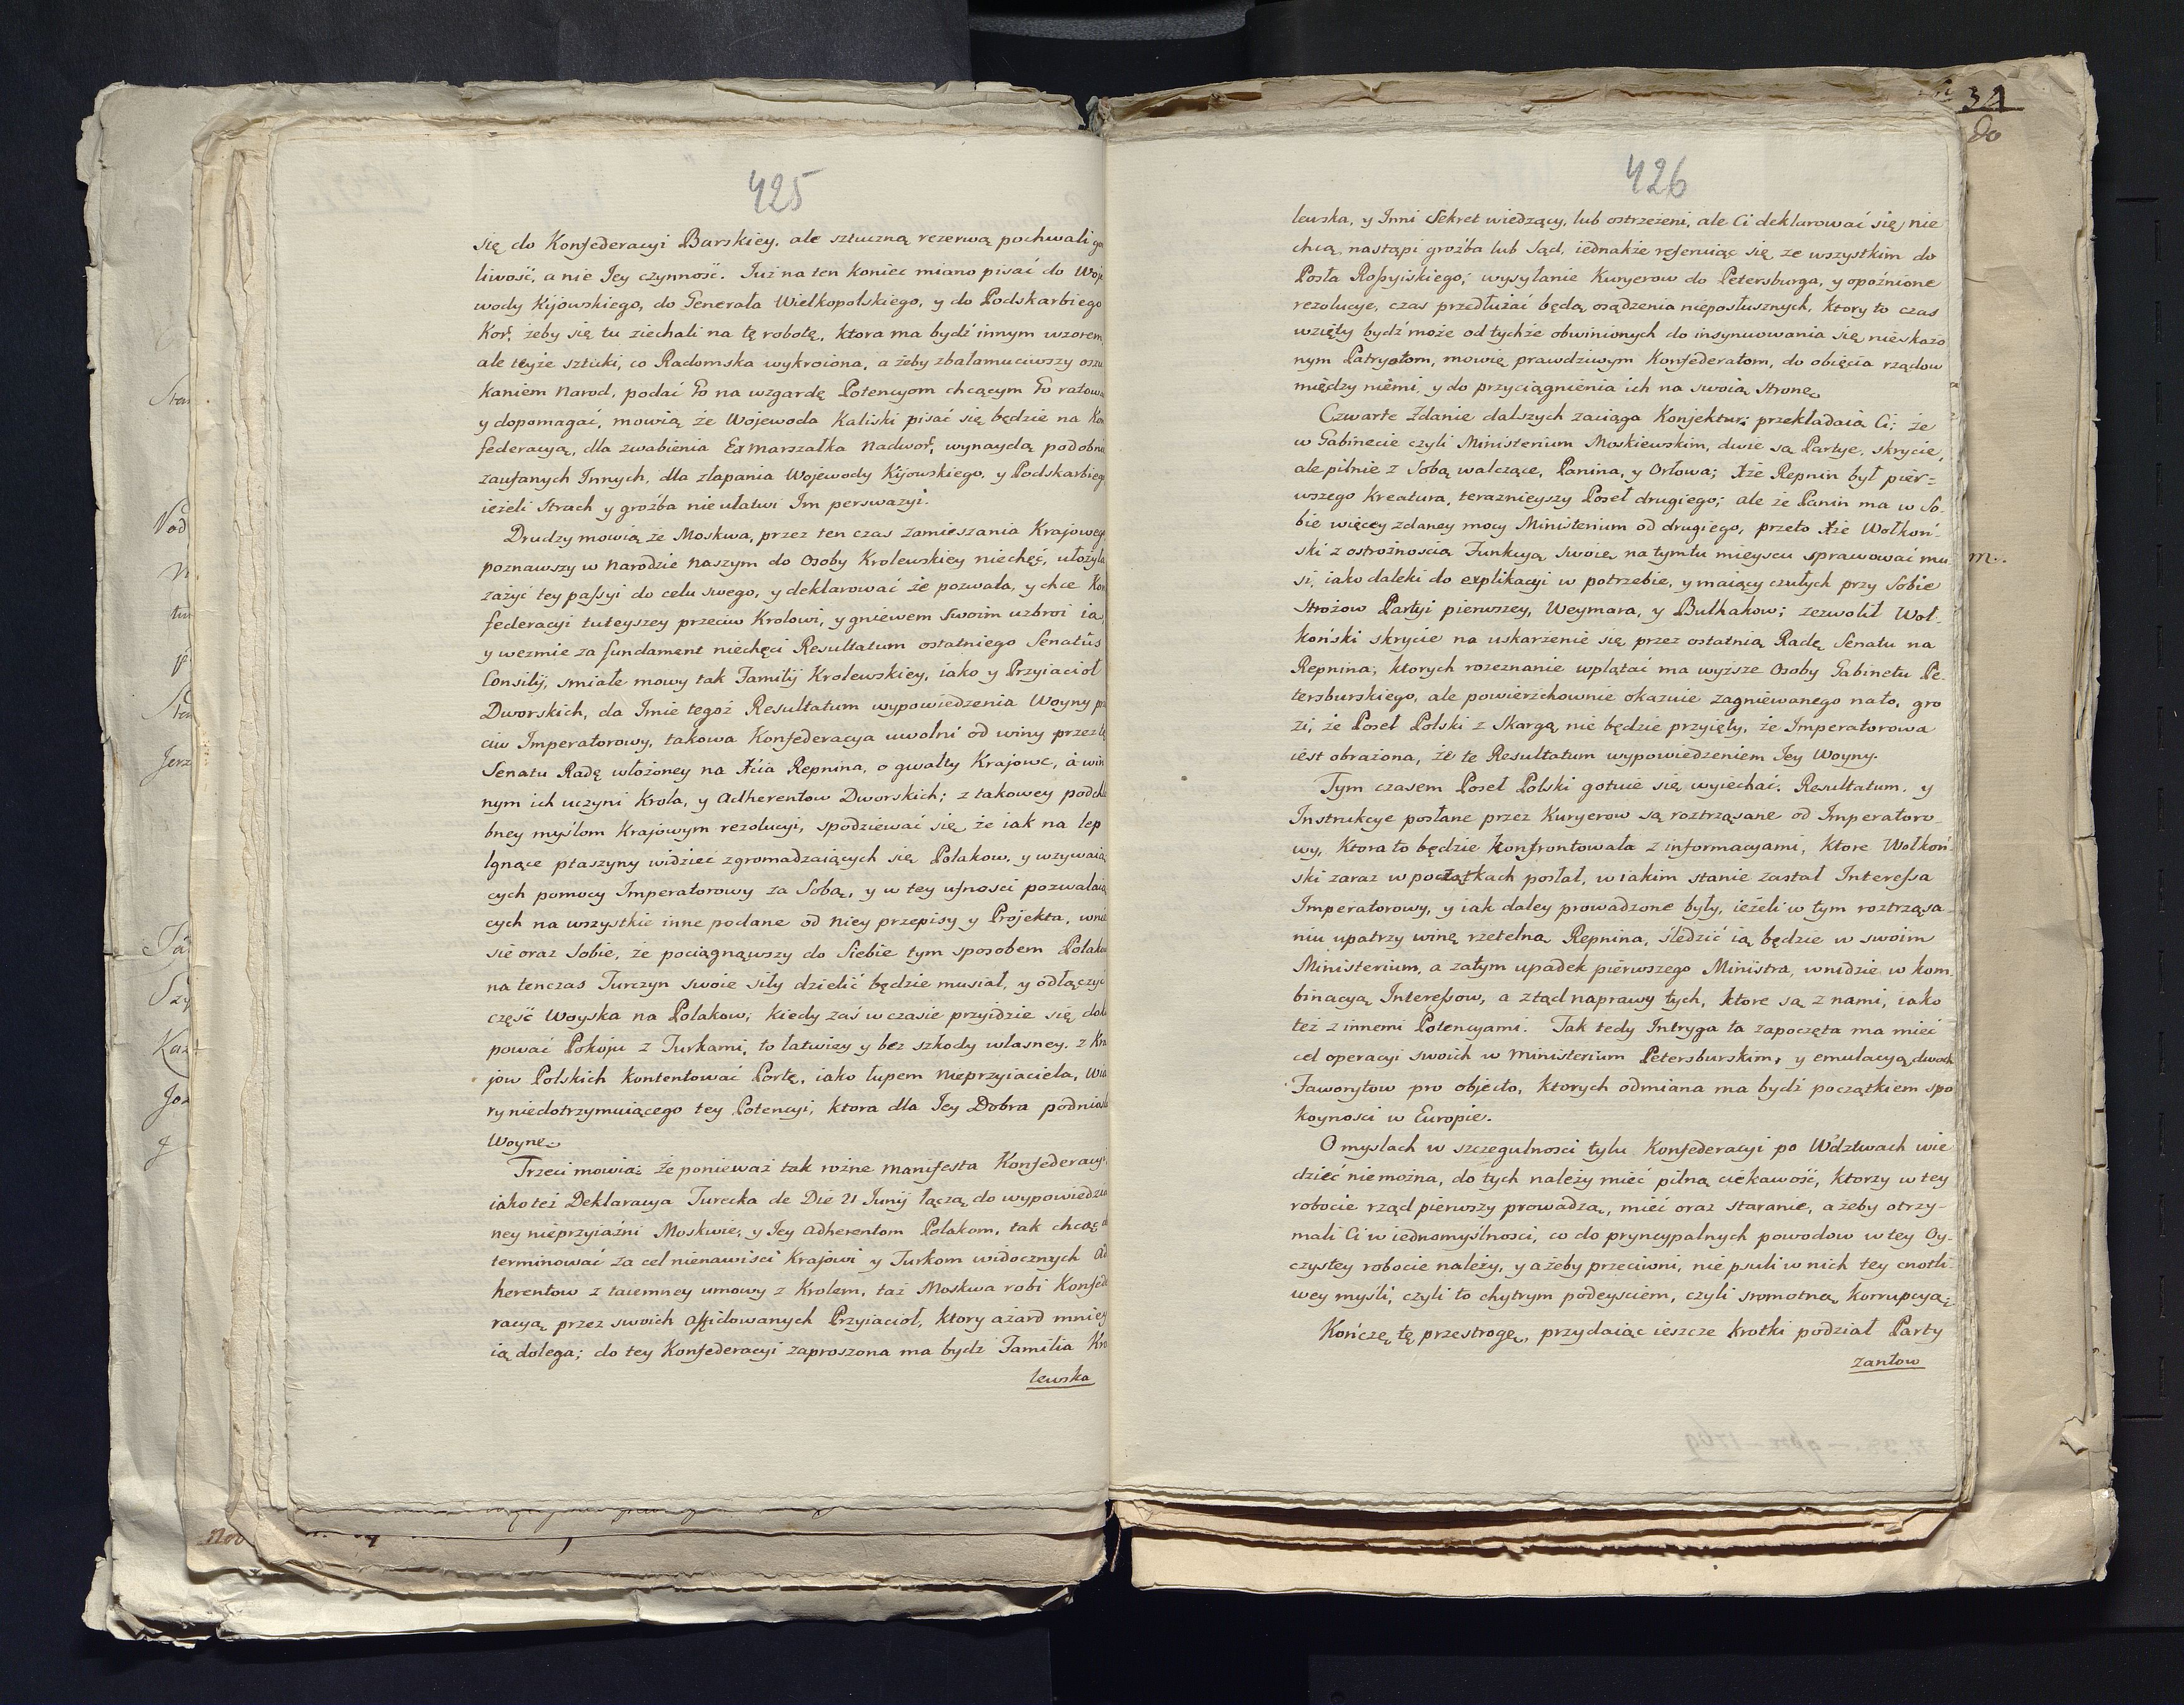 425
się do Konfederacyi Barskiey, ale sztuczną rezerwą pochwali go
liwość, a nie Jey czynność. Już na ten koniec miano pisać do Woje
wody Kijowskiego, do Generała Wielkopolskiego, y do Podskarbiego
Kor: żeby się tu ziechali na tę robotę, ktora ma bydź innym wzorem,
ale teyże sztuki, co Radomska wykroiona, a żeby zbałamuciwszy oszu
kaniem Narod, podać Go na wzgardę Potencyom chcącym Go ratowa
y dopomagać, mowią że Wojewoda Kaliski pisać się będzie na Kon
federacyą, dla zwabienia Ex Marszałka Nadwor, wynaydą podobnie
zaufanych Innych, dla złapania Wojewody Kijowskiego, y Podskarbieg
ieżeli Strach y groźba nie ułatwi Im perswazyi.
Drudzy mowią że Moskwa, przez ten czas zamieszania Krajoweg
poznawszy w Narodzie Naszym do Osoby Krolewskiey niechęć, ułożyła
zażyć tey passyi do celu swego, y deklarować że pozwala, y chce Kon
federacyi tuteyszey przeciw Krolowi, y gniewem Swoim uzbroi ią,
y wezmie za fundament niechęci Resultatum ostatniego Senatûs
Consilij, smiałe mowy tak Familij Krolewskiey, iako y Przyiacioł
Dworskich, da Imie tegoż Resultatum wypowiedzenia Woyny prze
ciw Imperatorowy, takowa Konfederacya uwolni od winy przez tę
Senatu Radę włożoney na Xcia Repnina, o gwałty Krajowe, à win
nym ich uczyni Krola, y Adherentow Dworskich; z takowey podchle
bney myslom Krajowym rezolucyi, spodziewać się że iak na lep
lgnące ptaszyny widzieć zgromadzaiących się Polakow, y wzywaią
cych pomocy Imperatorowy za Sobą, y w tey ufnosci pozwalaią
cych na wszystkie inne podane od Niey przepisy y Projekta, wno
sie oraz Sobie, że pociągnąwszy do Siebie tym sposobem Polakow
na tenczas Turczyn swoie siły dzielić będzie musiał, y odłączyć
część Woyska na Polakow; kiedy zaś w czasie przyidzie się dok
pować Pokoju z Turkami, to łatwiey y bez szkody własney, z Kra
jow Polskich kontentować Portę, iako łupem Nieprzyiaciela, Wia
ry niedotrzymuiącego tey Potencyi, ktora dla Jey Dobra podniosła
Woynę.
Trzeci mowią: że ponieważ tak rożne Manifesta Konfederacyi
iako też Deklaracya Turecka de Die 21 Junij łączą, do wypowiedzia
ney nieprzyiaźni Moskwie, y Jey Adherentom Polakom, tak chcąc
terminować za cel nienawisci Krajowi y Turkom widocznych Ad
herentow z taiemney umowy z Krolem, taż Moskwa robi Konfede
racyą przez swoich affidowanych Przyiacioł, ktory ażard mniey
ią dolega; do tey Konfederacyi zaproszona ma bydz Familia Kro
lewska
426
lewska, y Inni Sekret wiedzący, lub ostrzeżeni, ale Ci deklarować się nie
chcą, nastąpi groźba lub Sąd, iednakże referuiąc się ze wszystkim do
Posła Rossyiskiego; wysyłanie Kuryerow do Petersburga, y opoźnione
rezolucye, czas przedłużać będą osądzenia nieposłusznych, ktory to czas
wzięty bydź może od tychże obwinionych do insynuowania się nieskażo
nym Patryotom, mowię prawdziwym Konfederatom, do obięcia rządow
między niemi, y do przyciągnienia ich na swoią Stronę.
Czwarte Zdanie dalszych zaciąga Konjektur; przekładaią Ci; że
w Gabinecie czyli Ministerium Moskiewskim, dwie są Partye, skrycie,
ale pilnie z Sobą walczące, Panina, y Orłowa; Xże Repnin był pier=
wszego Kreatura, teraznieyszy Poseł drugiego; ale że Panin ma w So
bie więcey zdaney mocy Ministerium od drugiego, przeto Xże Wołkoń
ski z ostrożnoscią Funkcyą swoię na tymtu mieyscu sprawować mu
si, iako daleki do explikacyi w potrzebie, y maiący czułych przy Sobie
Strożow Partyi pierwszey, Weymara, y Bulhakow; zezwolił Woł
koński skrycie na uskarżenie się, przez ostatnią Radę Senatu na
Repnina; ktorych rozeznanie wplątać ma wyższe Osoby Gabinetu Pe
tersburskiego, ale powierzchownie okazuie zagniewanego na to, gro
zi, że Poseł Polski z Skargą nie będzie przyięty, że Imperatorowa
iest obrażona, że te Resultatum wypowiedzeniem Jey Woyny.
Tym czasem Poseł Polski gotuie się wyiechać. Resultatum, y
Instrukcye posłane przez Kuryerow są roztrząsane od Imperatoro
wy, Ktora to będzie konfrontowała z informacyami, ktore Wołkoń
ski zaraz w początkach posłał, w iakim stanie zastał Interessa
Imperatorowy, y iak daley prowadzone były, ieżeli w tym roztrząsa
niu upatrzy winę rzetelną Repnina, śledzić ią będzie w swoim
Ministerium, a zatym upadek pierwszego Ministra, wnidzie w kom
binacyą Interessow, a ztąd naprawy tych, ktore są z nami, iako
też z innemi Potencyami. Tak tedy Intryga ta zapoczęta ma mieć
cel operacyi swoich w Ministerium Petersburskim, y emulacyą dwoch
Faworytow pro objecto, ktorych odmiana ma bydź początkiem spo
koynosci w Europie.
O myslach w szczegulnosci tylu Konfederacyi po Wdztwach wie
dzieć niemożna, do tych należy mieć pilną ciekawość, ktorzy w tey
robocie rząd pierwszy prowadzą, mieć oraz staranie, ażeby otrzy-
mali Ci w iednomyślnosci, co do pryncypalnych powodow w tey Oy-
czystey robocie należy, y ażeby przeciwni, nie psuli w nich tey cnotli-
wey myśli, czyli to chytrym podeysciem, czyli sromotną Korrupcyą.
Kończę tę przestrogę, przydaiąc ieszcze krotki podział Party
zantow